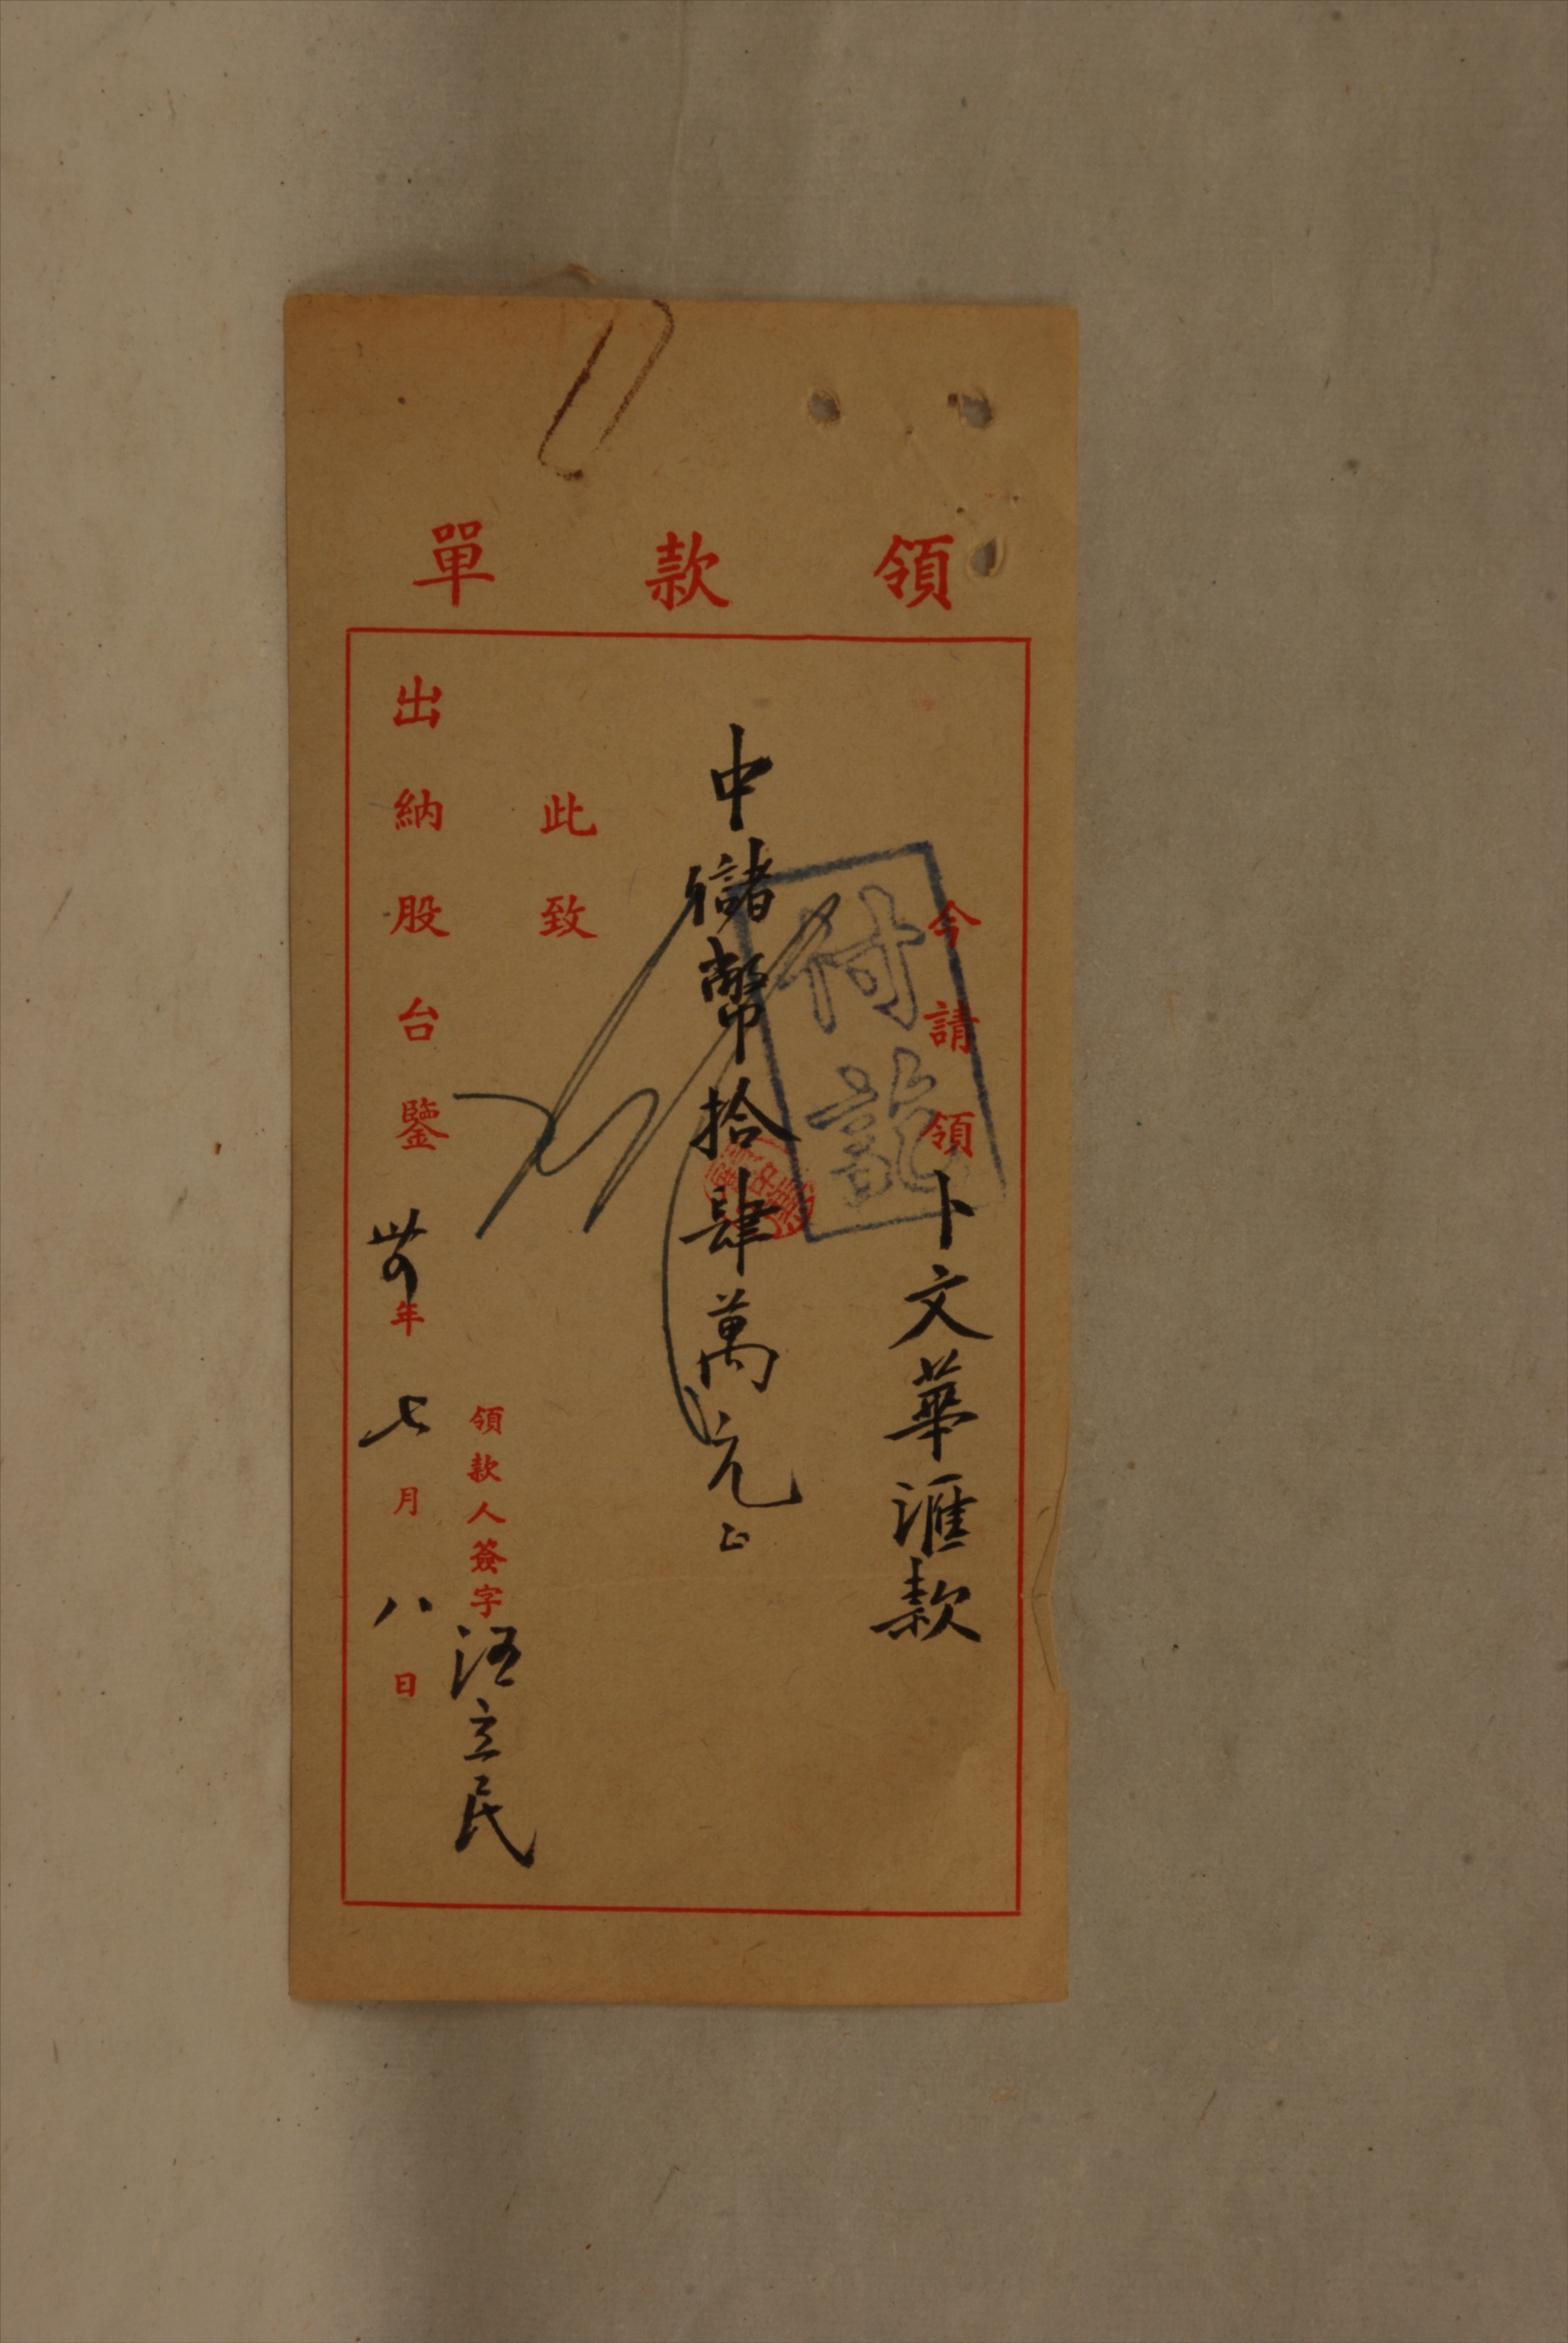 領款單
今請領卜文華滙款
中儲幣拾肆萬元正
此致
出納股台鑒
領款人簽字汪立民
卅四年七月八日
付訖